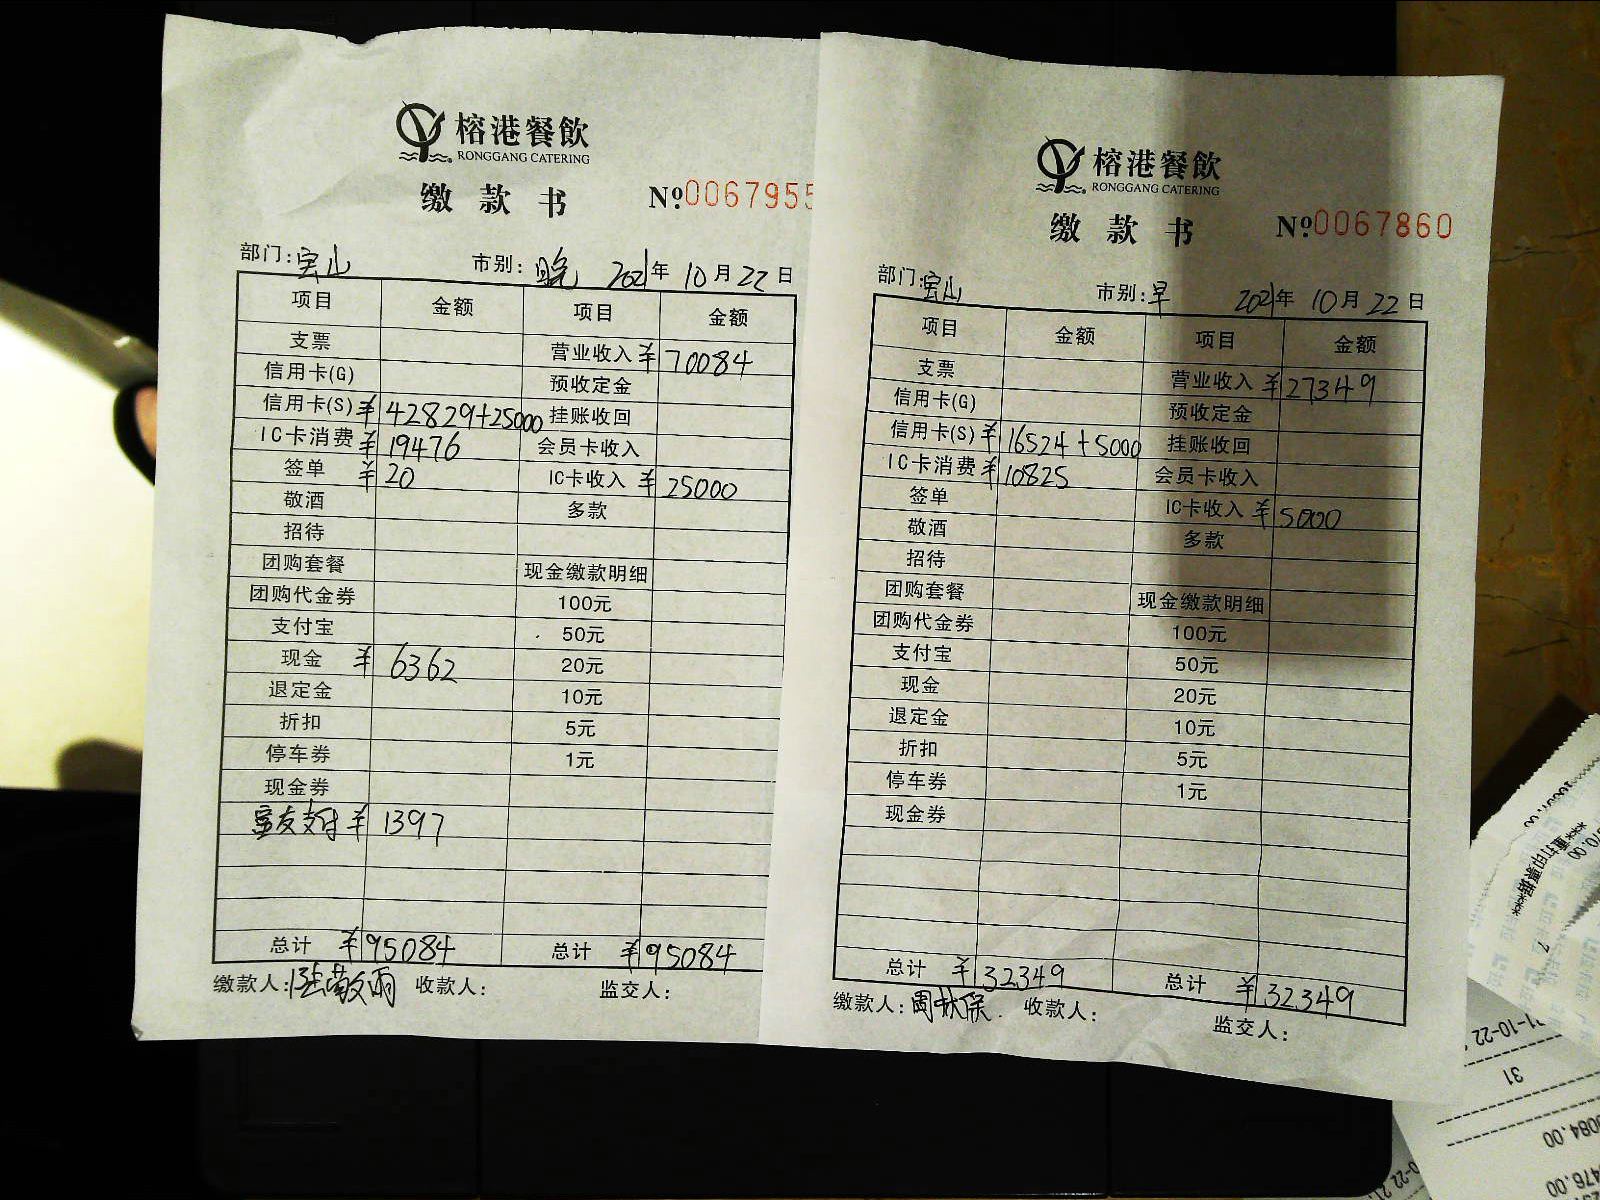 榕港餐飲
RONGGANG CATERING
缴款书 №0067955
部门: 宝山 市别: 晚 2021年 10月 22日
项目 金额 项目 金额
支票 营业收入 ¥70084
信用卡(G) 预收定金
信用卡(S) ¥42829+25000 挂账收回
IC卡消费 ¥19476 会员卡收入
签单 ¥20 IC卡收入 ¥25000
敬酒 多款
招待
团购套餐 现金缴款明细
团购代金券 100元
支付宝 50元
现金 ¥6362 20元
退定金 10元
折扣 5元
停车券 1元
现金券
支付 ¥1397
总计 ¥95084 总计 ¥95084
缴款人: 收款人: 监交人:
榕港餐飲
RONGGANG CATERING
缴款书 №0067860
部门: 宝山 市别: 早 2021年 10月 22日
项目 金额 项目 金额
支票 营业收入 ¥27349
信用卡(G) 预收定金
信用卡(S) ¥16524+5000 挂账收回
IC卡消费 ¥10825 会员卡收入
签单 IC卡收入 ¥5000
敬酒 多款
招待
团购套餐 现金缴款明细
团购代金券 100元
支付宝 50元
现金 20元
退定金 10元
折扣 5元
停车券 1元
现金券
总计 ¥32349 总计 ¥32349
缴款人: 周秋保. 收款人: 监交人:
70.00
***重打印票据***
1-10-22
31
084.00
476.00